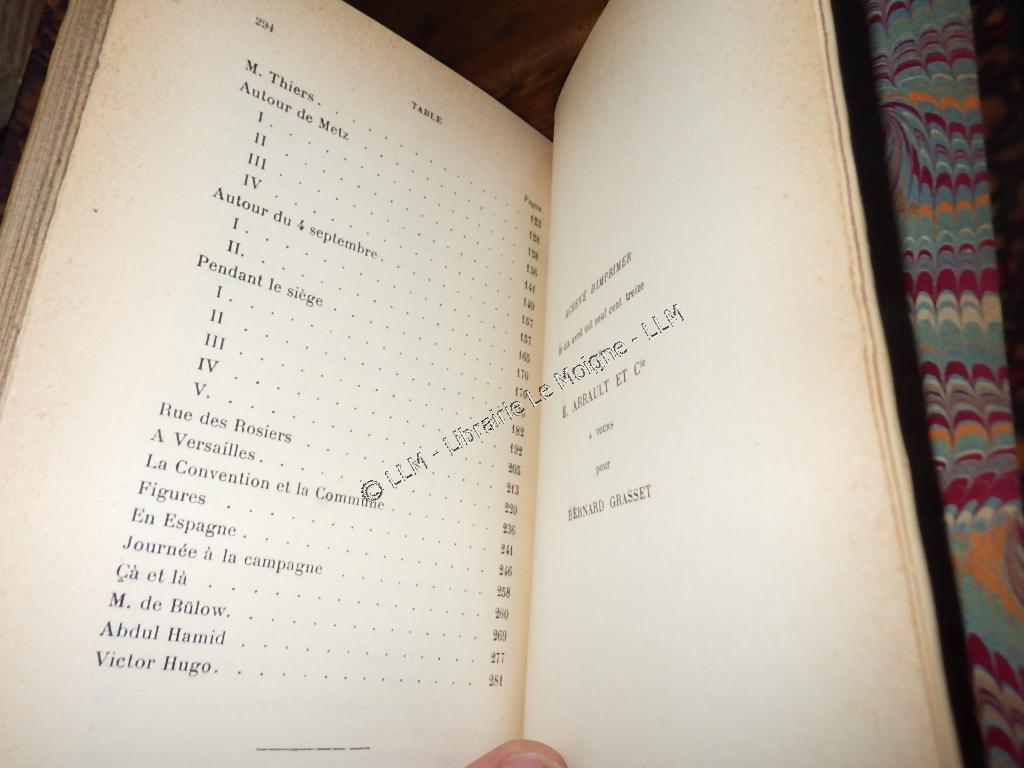 294
TABLE
Pages
M. Thiers. 123
Autour de Metz 128
I. 128
II 136
III 141
IV 149
Autour du 4 septembre. 157
I. 157
II. 165
Pendant le siège 170
I. 170
II
III 182
IV 192
V. 205
Rue des Rosiers 213
A Versailles. 220
La Convention et la Commune 236
Figures 241
En Espagne 246
Journée à la campagne 258
Çà et là 260
M. de Bülow. 269
Abdul Hamid 277
Victor Hugo. 281
ACHEVÉ D'IMPRIMER
le dix avril mil neuf cent treize
E. ARRAULT ET Cie
A TOURS
pour
BERNARD GRASSET
© LLM - Librairie Le Moigne - LLM